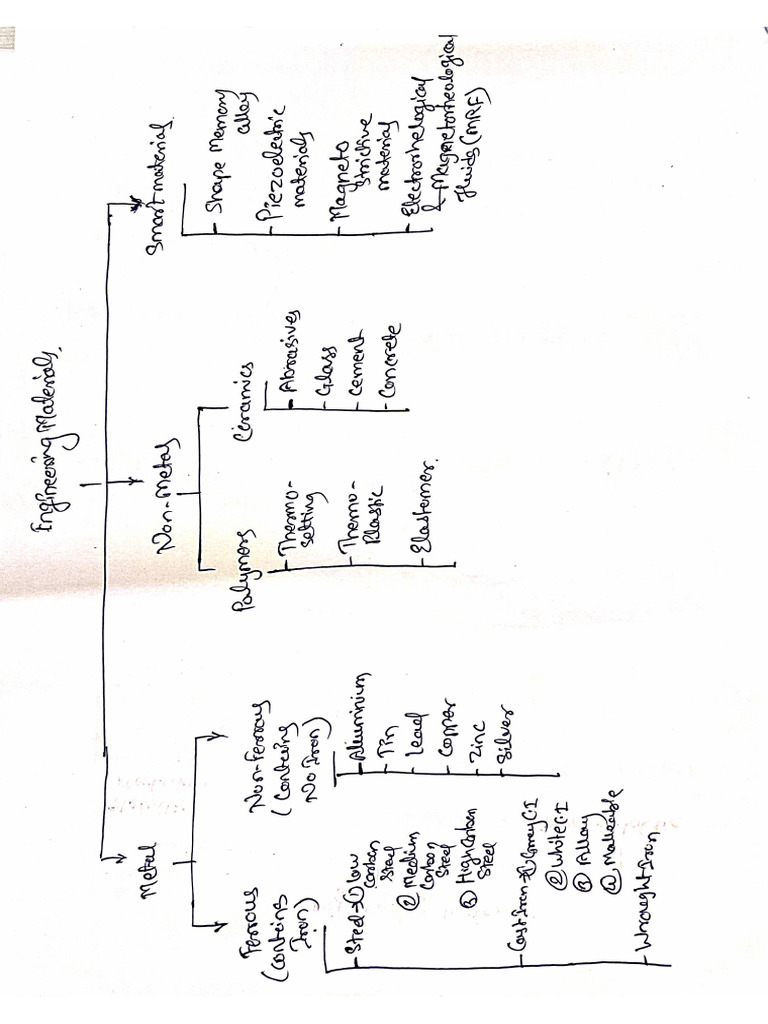 Engineering Materials.
Metal
Non-Metal
Smart material
Ferrous
(contains
Iron)
Steel → ① low
carbon
steel
② Medium
Carbon
Steel
③ High Carbon
Steel
Cast Iron → ① Grey C.I
② White C.I
③ Alloy
④ Malleable
Wrought Iron
Non-Ferrous
(Containing
No Iron)
Aluminium
Tin
Lead
Copper
Zinc
Silver
Polymers
Thermo-
setting
Thermo-
Plastic
Elastomer.
Ceramics
Abrasives
Glass
Cement
Concrete
Shape Memory
alloy
Piezoelectric
materials
Magneto
strictive
material
Electrorhelogical
& Magnetorheological
fluids (MRF)